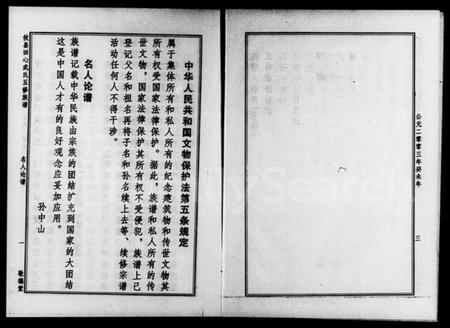 公元二零零三年癸未年
三
中华人民共和国文物保护法第五条规定
属于集体所有和私人所有的纪念建筑物和传世文物其
所有权受国家法律保护。据此，族谱和私人所有的传
世文物，国家法律保护其所有权不受侵犯，族谱上已
登记父名和祖名再将子名和孙名续上去等，续修宗谱
活动任何人不得干涉。
名人论谱
族谱记载中华民族由宗族的团结扩充到国家的大团结
这是中国人才有的良好观念应妥加应用。
孙中山
攸县田心武氏五修族谱
名人论谱
一
敬德堂